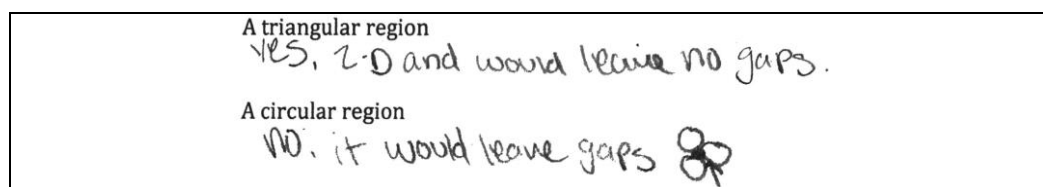 A triangular region
Yes, 2-D and would leave no gaps.
A circular region
no. it would leave gaps